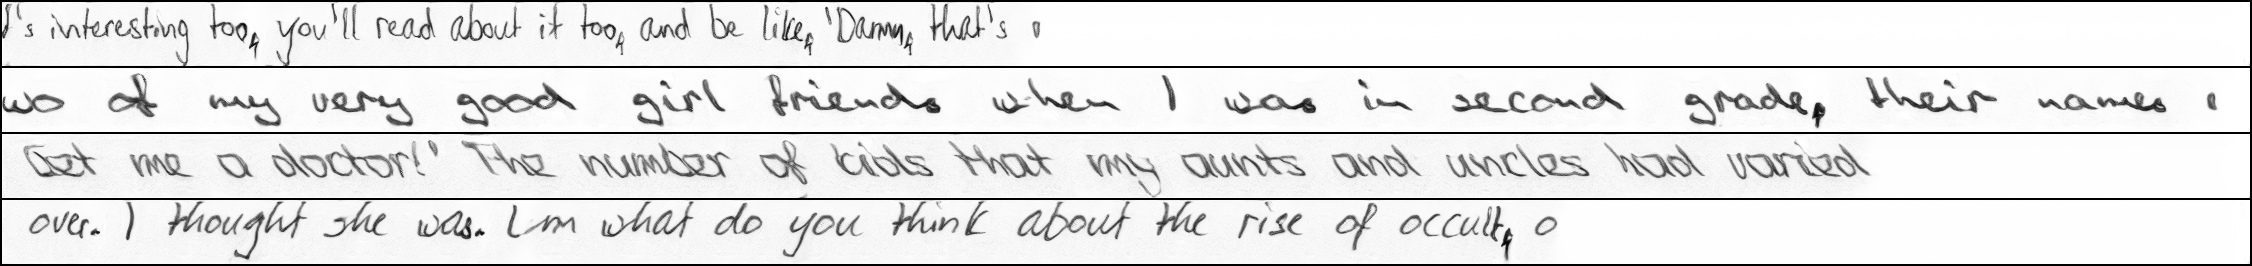 interesting too, you'll read about it too, and be like, 'Damn, that's
of my very good girl friends when I was in second grade, their names
Get me a doctor!' The number of kids that my aunts and uncles had varied
over. I thought she was. what do you think about the rise of occult, o